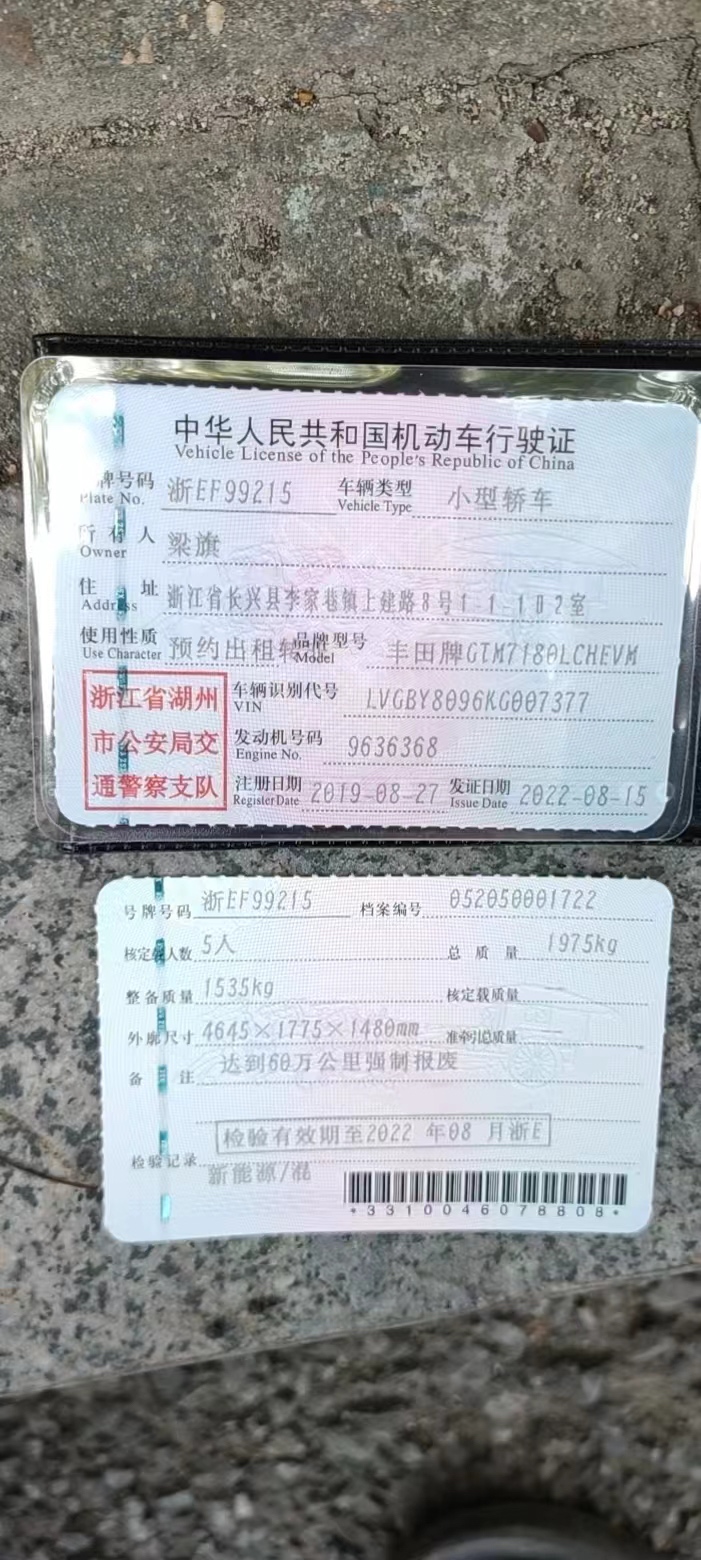 中华人民共和国机动车行驶证
Vehicle License of the People's Republic of China
牌号码 浙EF99215 车辆类型 小型轿车
Plate No. Vehicle Type
所有人 梁旗
Owner
住址 浙江省长兴县李家巷镇上建路8号1-1-102室
Address
使用性质 预约出租转 品牌型号 丰田牌GTM7180LCHEVM
Use Character Model
浙江省湖州
市公安局交
通警察支队
车辆识别代号 LVGBY8096KG007377
VIN
发动机号码 9636368
Engine No.
注册日期 2019-08-27 发证日期 2022-08-15
Register Date Issue Date
号牌号码 浙EF99215 档案编号 052050001722
核定人数 5人 总质量 1975kg
整备质量 1535kg 核定载质量
外廓尺寸 4645×1775×1480mm 准牵引总质量
备注 达到60万公里强制报废
检验有效期至2022 年08 月浙E
检验记录
新能源/混
*3310046078808*